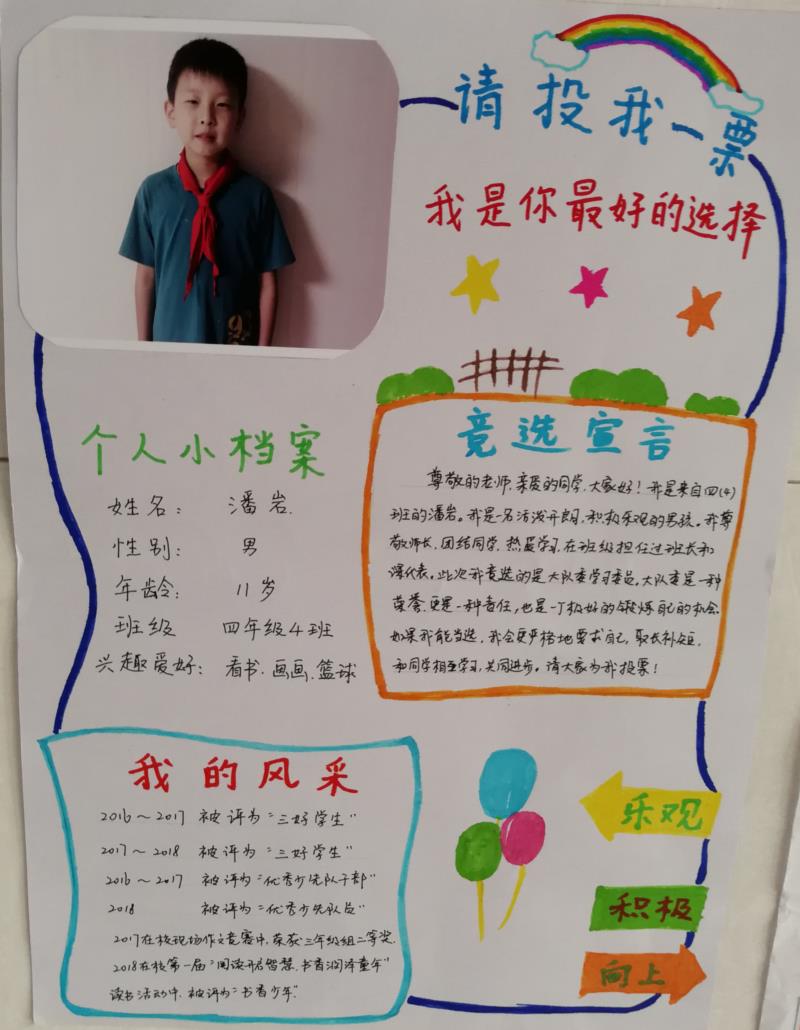 请投我一票
我是你最好的选择
个人小档案
姓名： 潘岩
性别： 男
年龄： 11岁
班级 四年级4班
兴趣爱好： 看书.画画.篮球
竞选宣言
尊敬的老师,亲爱的同学,大家好！我是来自四(4)
班的潘岩。我是一名活泼开朗,积极乐观的男孩。我尊
敬师长,团结同学,热爱学习,在班级担任过班长和
课代表。此次我竞选的是大队委学习委员。大队委是一种
荣誉.更是一种责任,也是一个极好的锻炼自己的机会.
如果我能当选,我会更严格地要求自己,取长补短,
和同学相互学习,共同进步。请大家为我投票！
我的风采
2016～2017 被评为“三好学生”
2017～2018 被评为“三好学生”
2016～2017 被评为“优秀少先队干部”
2018 被评为“优秀少先队员”
2017在校现场作文竞赛中,荣获三年级组二等奖.
2018在校第一届“阅读开启智慧.书香润泽童年”
读书活动中.被评为“书香少年”.
乐观
积极
向上